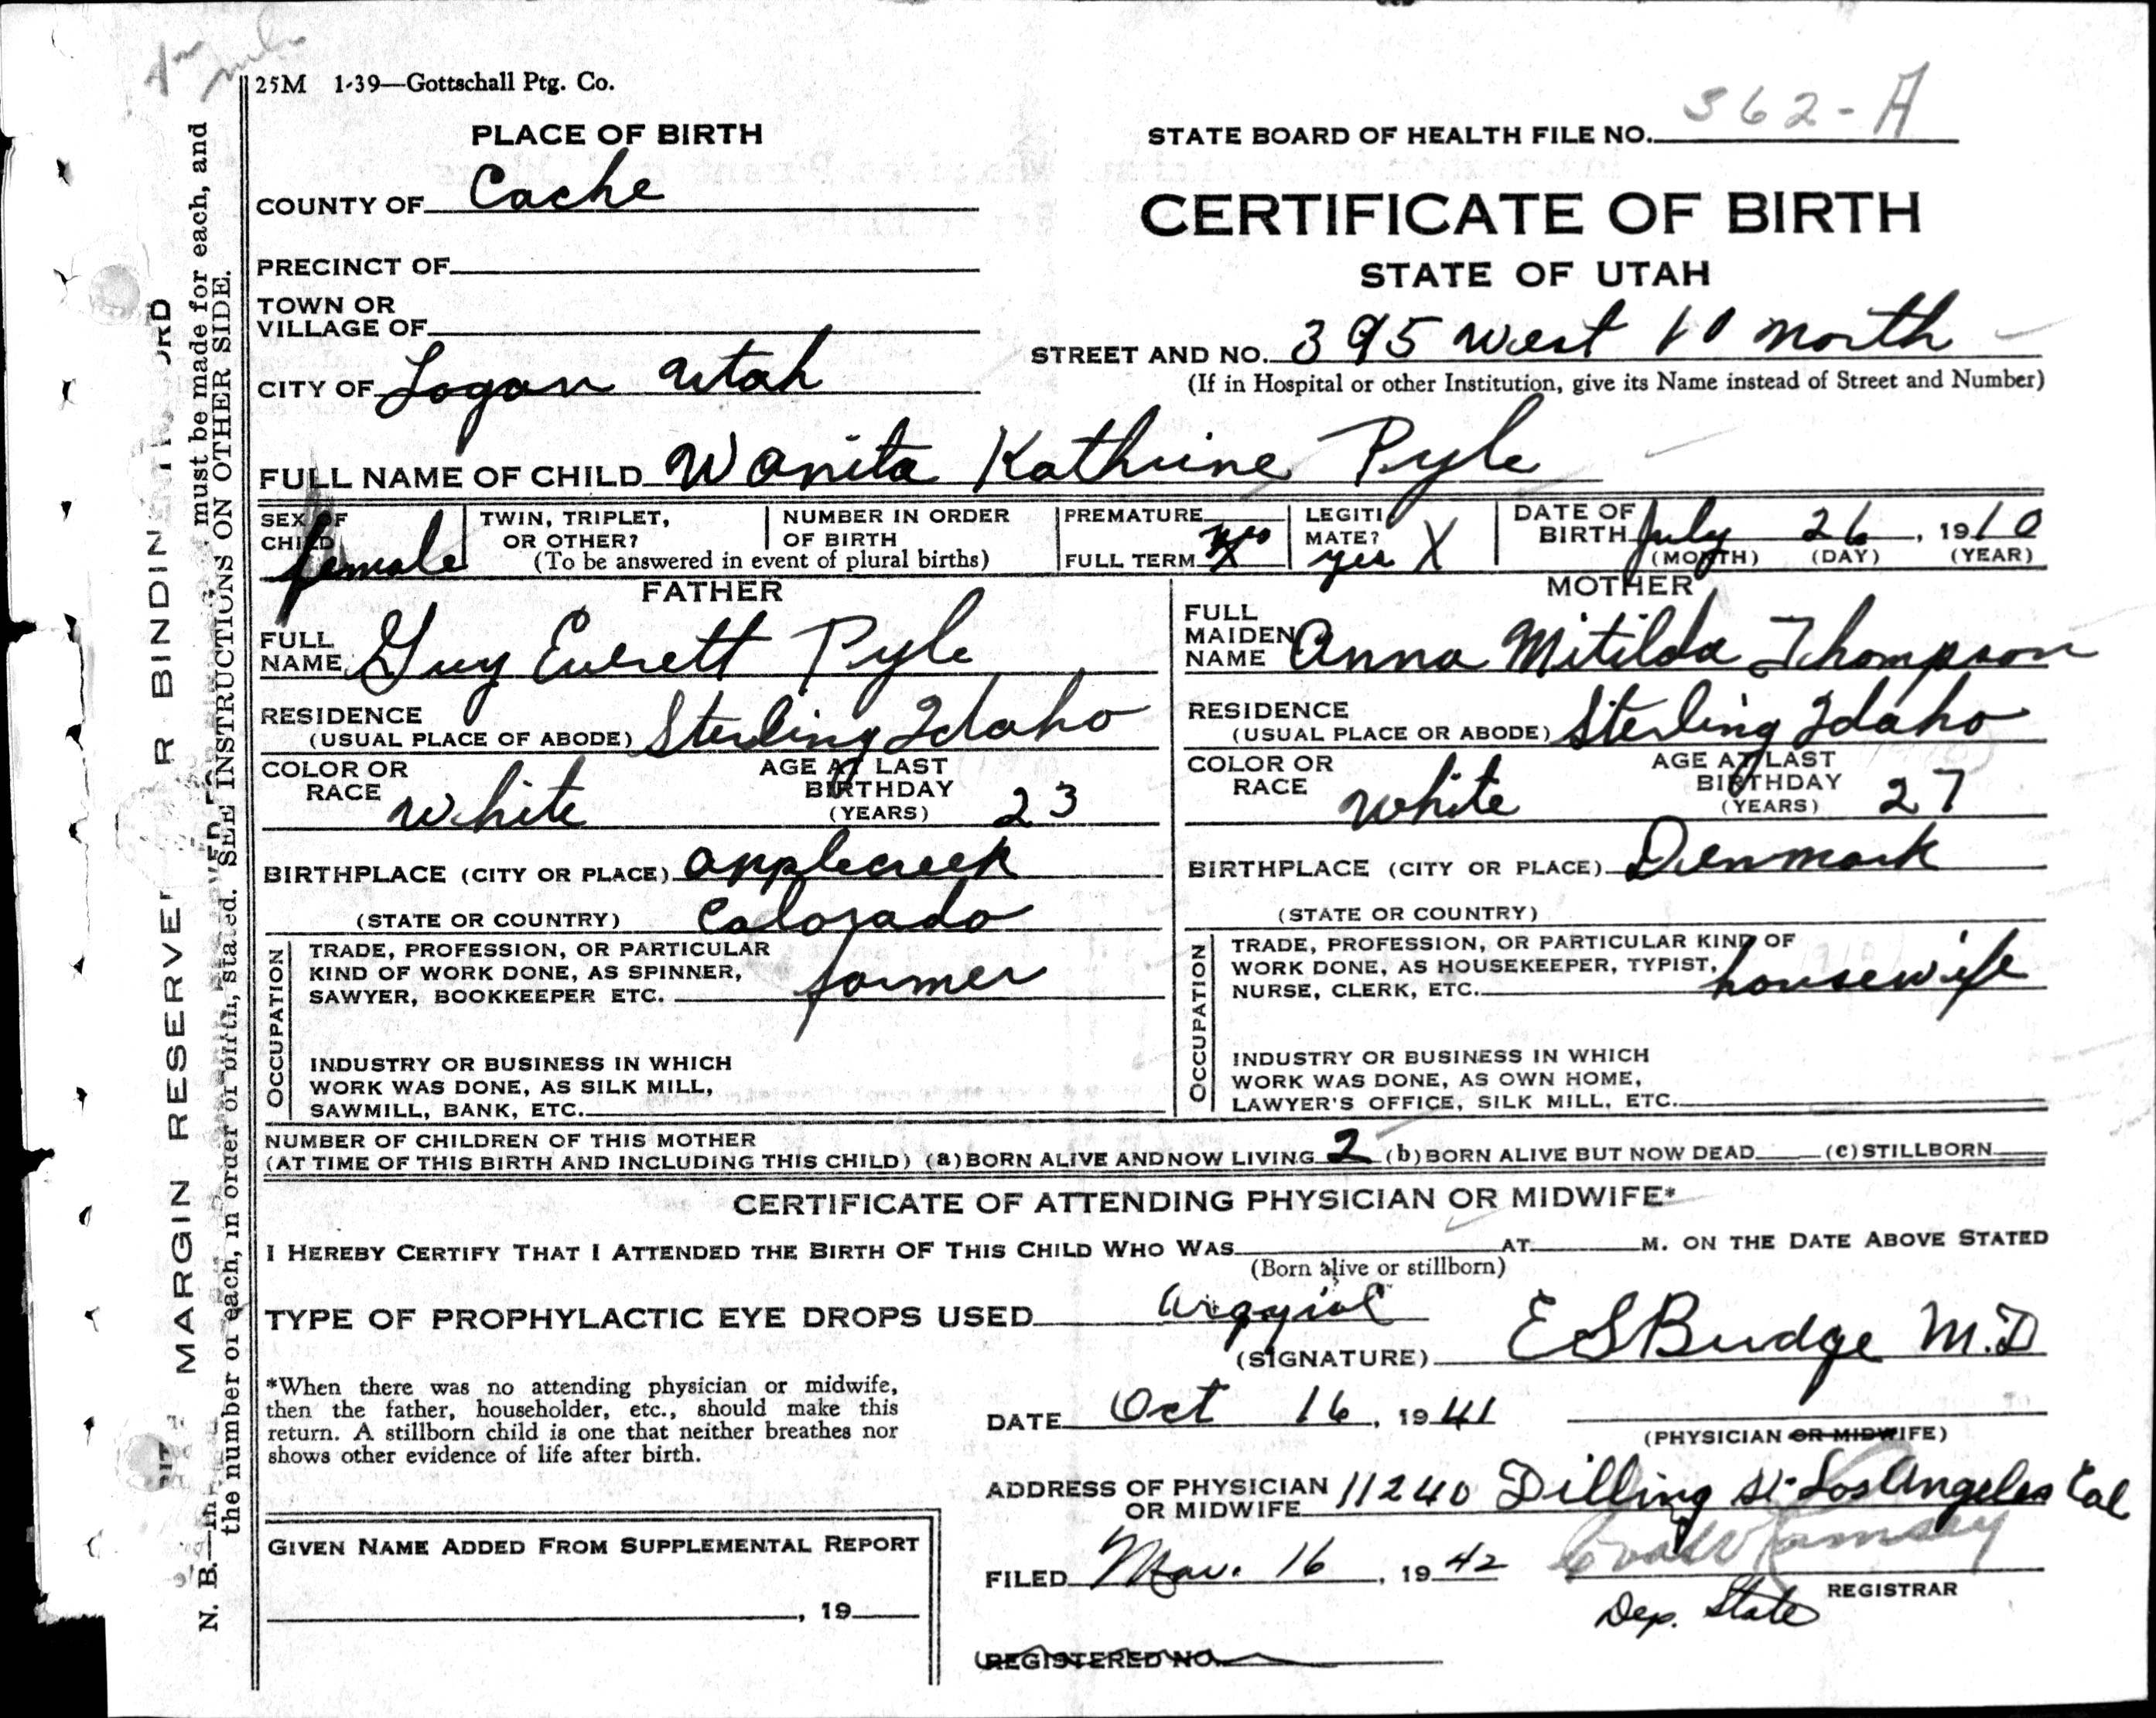 25M 1-39—Gottschall Ptg. Co.
PLACE OF BIRTH
STATE BOARD OF HEALTH FILE NO. 362-A
COUNTY OF Cache
CERTIFICATE OF BIRTH
PRECINCT OF
STATE OF UTAH
TOWN OR
VILLAGE OF
STREET AND NO. 395 West 10 North
(If in Hospital or other Institution, give its Name instead of Street and Number)
CITY OF Logan Utah
FULL NAME OF CHILD Wanita Kathrine Pyle
SEX OF CHILD female
TWIN, TRIPLET, OR OTHER?
NUMBER IN ORDER OF BIRTH
(To be answered in event of plural births)
PREMATURE no
FULL TERM X
LEGITIMATE? yes X
DATE OF BIRTH July 26, 1910
(MONTH) (DAY) (YEAR)
FATHER
FULL NAME Guy Everett Pyle
RESIDENCE
(USUAL PLACE OF ABODE) Sterling Idaho
COLOR OR RACE White
AGE AT LAST BIRTHDAY (YEARS) 23
BIRTHPLACE (CITY OR PLACE) applecreek
(STATE OR COUNTRY) Colorado
OCCUPATION
TRADE, PROFESSION, OR PARTICULAR
KIND OF WORK DONE, AS SPINNER,
SAWYER, BOOKKEEPER ETC. farmer
INDUSTRY OR BUSINESS IN WHICH
WORK WAS DONE, AS SILK MILL,
SAWMILL, BANK, ETC.
MOTHER
FULL MAIDEN NAME Anna Mitilda Thompson
RESIDENCE
(USUAL PLACE OR ABODE) Sterling Idaho
COLOR OR RACE White
AGE AT LAST BIRTHDAY (YEARS) 27
BIRTHPLACE (CITY OR PLACE) Denmark
(STATE OR COUNTRY)
OCCUPATION
TRADE, PROFESSION, OR PARTICULAR KIND OF
WORK DONE, AS HOUSEKEEPER, TYPIST,
NURSE, CLERK, ETC. housewife
INDUSTRY OR BUSINESS IN WHICH
WORK WAS DONE, AS OWN HOME,
LAWYER'S OFFICE, SILK MILL, ETC.
NUMBER OF CHILDREN OF THIS MOTHER
(AT TIME OF THIS BIRTH AND INCLUDING THIS CHILD) (a) BORN ALIVE AND NOW LIVING 2 (b) BORN ALIVE BUT NOW DEAD (c) STILLBORN
CERTIFICATE OF ATTENDING PHYSICIAN OR MIDWIFE*
I HEREBY CERTIFY THAT I ATTENDED THE BIRTH OF THIS CHILD WHO WAS AT M. ON THE DATE ABOVE STATED
(Born alive or stillborn)
TYPE OF PROPHYLACTIC EYE DROPS USED Argyiol
(SIGNATURE) E S Budge M.D
*When there was no attending physician or midwife,
then the father, householder, etc., should make this
return. A stillborn child is one that neither breathes nor
shows other evidence of life after birth.
DATE Oct 16, 1941
(PHYSICIAN OR MIDWIFE)
ADDRESS OF PHYSICIAN
OR MIDWIFE 11240 Dilling St Los Angeles Cal
GIVEN NAME ADDED FROM SUPPLEMENTAL REPORT
, 19
FILED Mar. 16, 1942
Ramsey
REGISTRAR
Dep. State
REGISTERED NO.
MARGIN RESERVED R BINDING
must be made for each, and
the number of each, in order of birth, stated. SEE INSTRUCTIONS ON OTHER SIDE.
N. B.—In